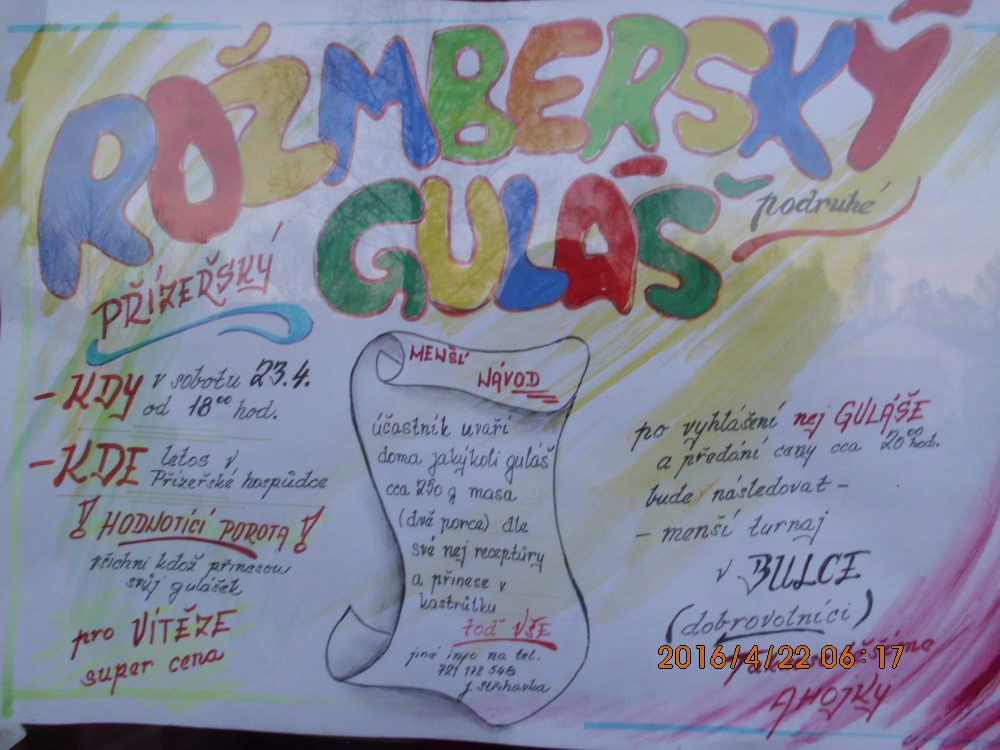 ROŽMBERSKÝ
GULÁŠ
podruhé
PŘÍZEŘSKÝ
- KDY v sobotu 23.4.
od 18⁰⁰ hod.
- KDE letos v
Přízeřské hospůdce
! HODNOTÍCÍ POROTA !
všichni kdož přinesou
svůj gulášek
pro VÍTĚZE
super cena
MENŠÍ
NÁVOD
účastník uvaří
doma jakýkoli guláš
cca 250 g masa
(dvě porce) dle
své nej receptůry
a přinese v
kastrůlku
toď VŠE
jiné info na tel.
721 172 548
J. Střihavka
po vyhlášení nej GULÁŠE
a předání ceny cca 20⁰⁰ hod.
bude následovat -
- menší turnaj
v BULCE
(dobrovolníci)
2016/4/22 06:17
AHOJKY